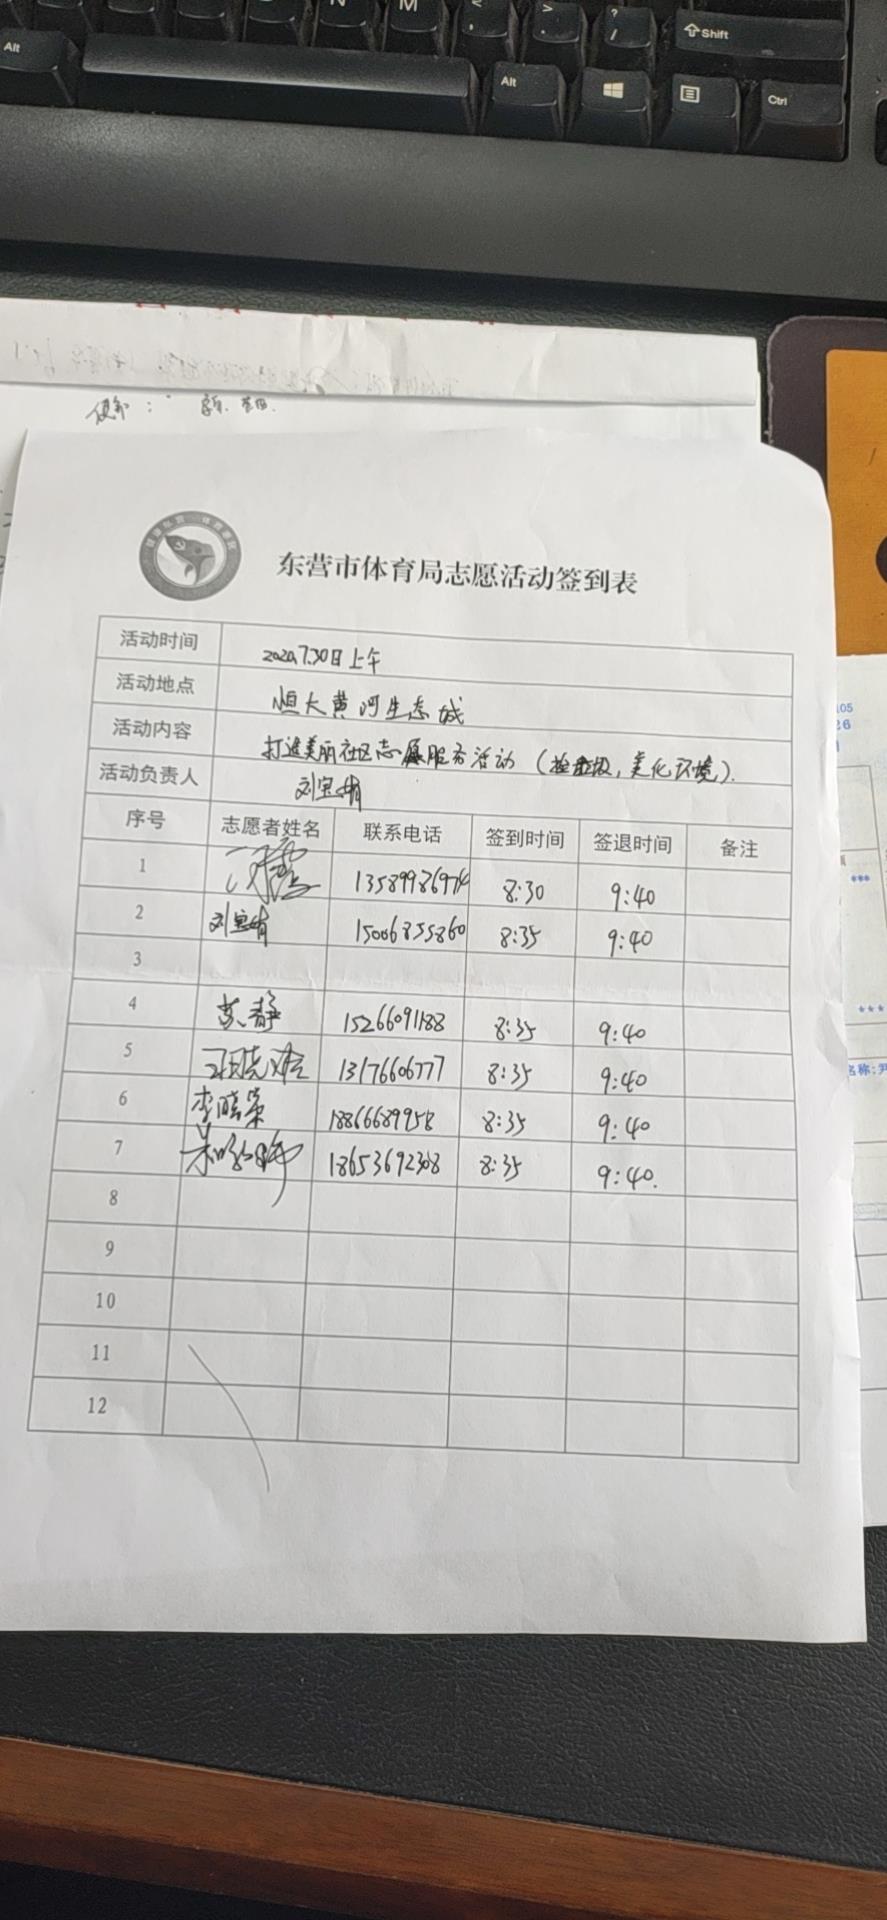 N M < , > . ? / Shift
Alt Alt Ctrl
东营市体育局志愿活动签到表
活动时间 2020.7.30日上午
活动地点 恒大黄河生态城
活动内容 打造美丽社区志愿服务活动（捡垃圾，美化环境）.
活动负责人 刘宝娟
序号 志愿者姓名 联系电话 签到时间 签退时间 备注
1 8:30 9:40
2 刘宝娟 15006855860 8:35 9:40
3
4 苏静 15266091188 8:35 9:40
5 13176606777 8:35 9:40
6 李晓荣 18866689958 8:35 9:40
7 18653692308 8:35 9:40.
8
9
10
11
12
105
26
***
***
名称:尹